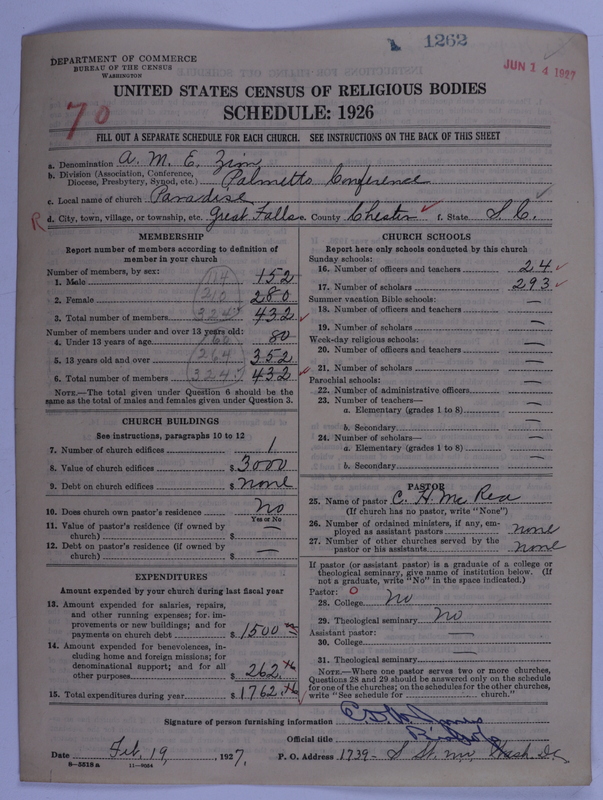 1262
JUN 14 1927
DEPARTMENT OF COMMERCE
BUREAU OF THE CENSUS
WASHINGTON
UNITED STATES CENSUS OF RELIGIOUS BODIES
SCHEDULE: 1926
70
FILL OUT A SEPARATE SCHEDULE FOR EACH CHURCH. SEE INSTRUCTIONS ON THE BACK OF THIS SHEET
a. Denomination A. M. E. Zion
b. Division (Association, Conference, Diocese, Presbytery, Synod, etc.) Palmetto Conference
c. Local name of church Paradise
R d. City, town, village, or township, etc. Great Falls e. County Chester f. State S. C.
MEMBERSHIP
Report number of members according to definition of
member in your church
Number of members, by sex:
1. Male 114 152
2. Female 210 280
3. Total number of members 324 432
Number of members under and over 13 years old:
4. Under 13 years of age 60 80
5. 13 years old and over 264 352
6. Total number of members 324 432
NOTE.—The total given under Question 6 should be the
same as the total of males and females given under Question 3.
CHURCH BUILDINGS
See instructions, paragraphs 10 to 12
7. Number of church edifices 1
8. Value of church edifices $ 3000
9. Debt on church edifices $ none
10. Does church own pastor's residence No
Yes or No
11. Value of pastor's residence (if owned by
church) $ —
12. Debt on pastor's residence (if owned by
church) $ —
EXPENDITURES
Amount expended by your church during last fiscal year
13. Amount expended for salaries, repairs,
and other running expenses; for improvements or new buildings; and for
payments on church debt $ 1500
14. Amount expended for benevolences, including home and foreign missions; for
denominational support; and for all
other purposes $ 262.
15. Total expenditures during year $ 1762.
CHURCH SCHOOLS
Report here only schools conducted by this church
Sunday schools:
16. Number of officers and teachers 24
17. Number of scholars 293
Summer vacation Bible schools:
18. Number of officers and teachers —
19. Number of scholars —
Week-day religious schools:
20. Number of officers and teachers —
21. Number of scholars —
Parochial schools:
22. Number of administrative officers —
23. Number of teachers—
a. Elementary (grades 1 to 8) —
b. Secondary —
24. Number of scholars—
a. Elementary (grades 1 to 8) —
b. Secondary —
PASTOR
25. Name of pastor C. H. McRea
(If church has no pastor, write "None")
26. Number of ordained ministers, if any, employed as assistant pastors none
27. Number of other churches served by the
pastor or his assistants none
If pastor (or assistant pastor) is a graduate of a college or
theological seminary, give name of institution below. (If
not a graduate, write "No" in the space indicated.)
Pastor: O
28. College No
29. Theological seminary No
Assistant pastor: —
30. College —
31. Theological seminary —
NOTE.—Where one pastor serves two or more churches,
Questions 28 and 29 should be answered only on the schedule
for one of the churches; on the schedules for the other churches,
write "See schedule for church."
Signature of person furnishing information
Official title Bishop
Date Feb. 19, 1927. P. O. Address 1739- S St. NW, Wash. D.C.
8-5518a 11-9054